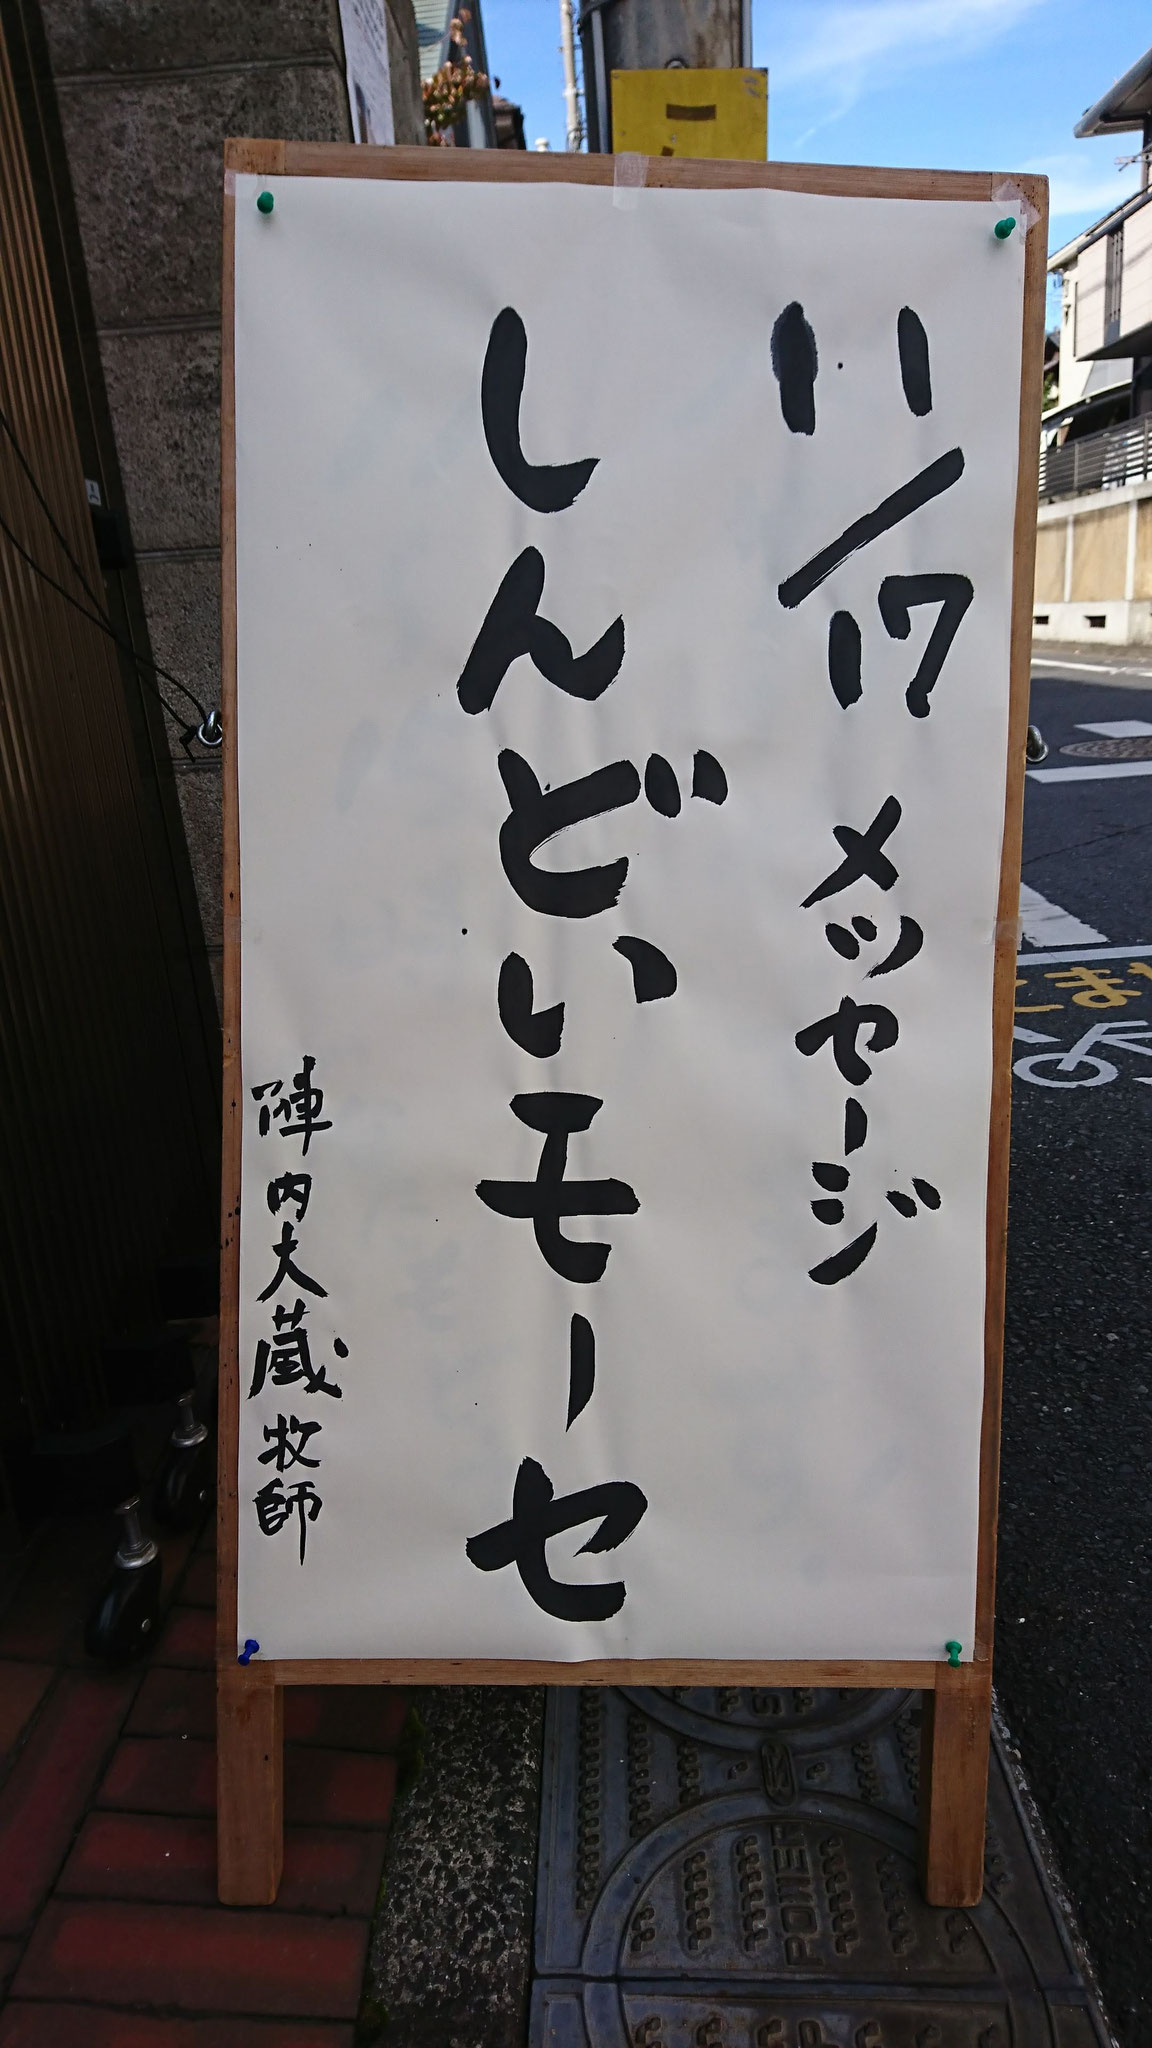 11/17 メッセージ
しんどいモーセ
陣内大蔵牧師
POWER